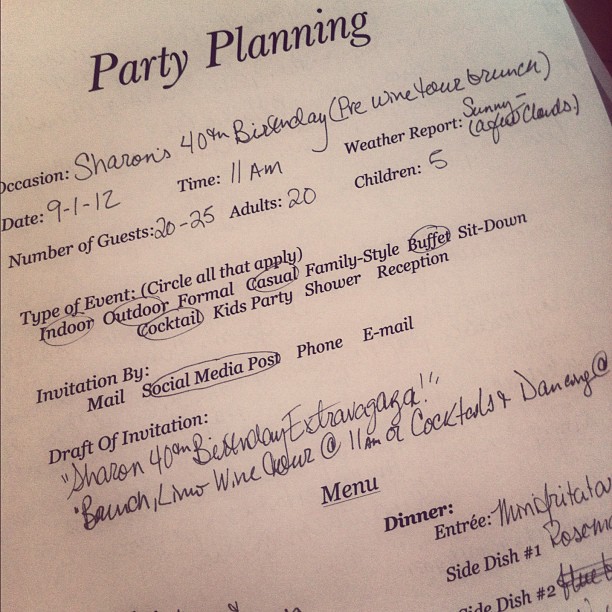 Party Planning
Occasion: Sharon's 40th Birthday (Pre wine tour brunch)
Date: 9-1-12 Time: 11 Am Weather Report: Sunny - (a few clouds.)
Number of Guests: 20-25 Adults: 20 Children: 5
Type of Event: (Circle all that apply)
Indoor Outdoor Formal Casual Family-Style Buffet Sit-Down
Cocktail Kids Party Shower Reception
Invitation By:
Mail Social Media Post Phone E-mail
Draft Of Invitation:
"Sharon 40th Birthday Extravagaza!!"
"Brunch, Limo Wine Tour @ 11 Am Cocktails + Dancing @
Menu
Dinner:
Entrée: Mini fritata
Side Dish #1 Rosem
Side Dish #2